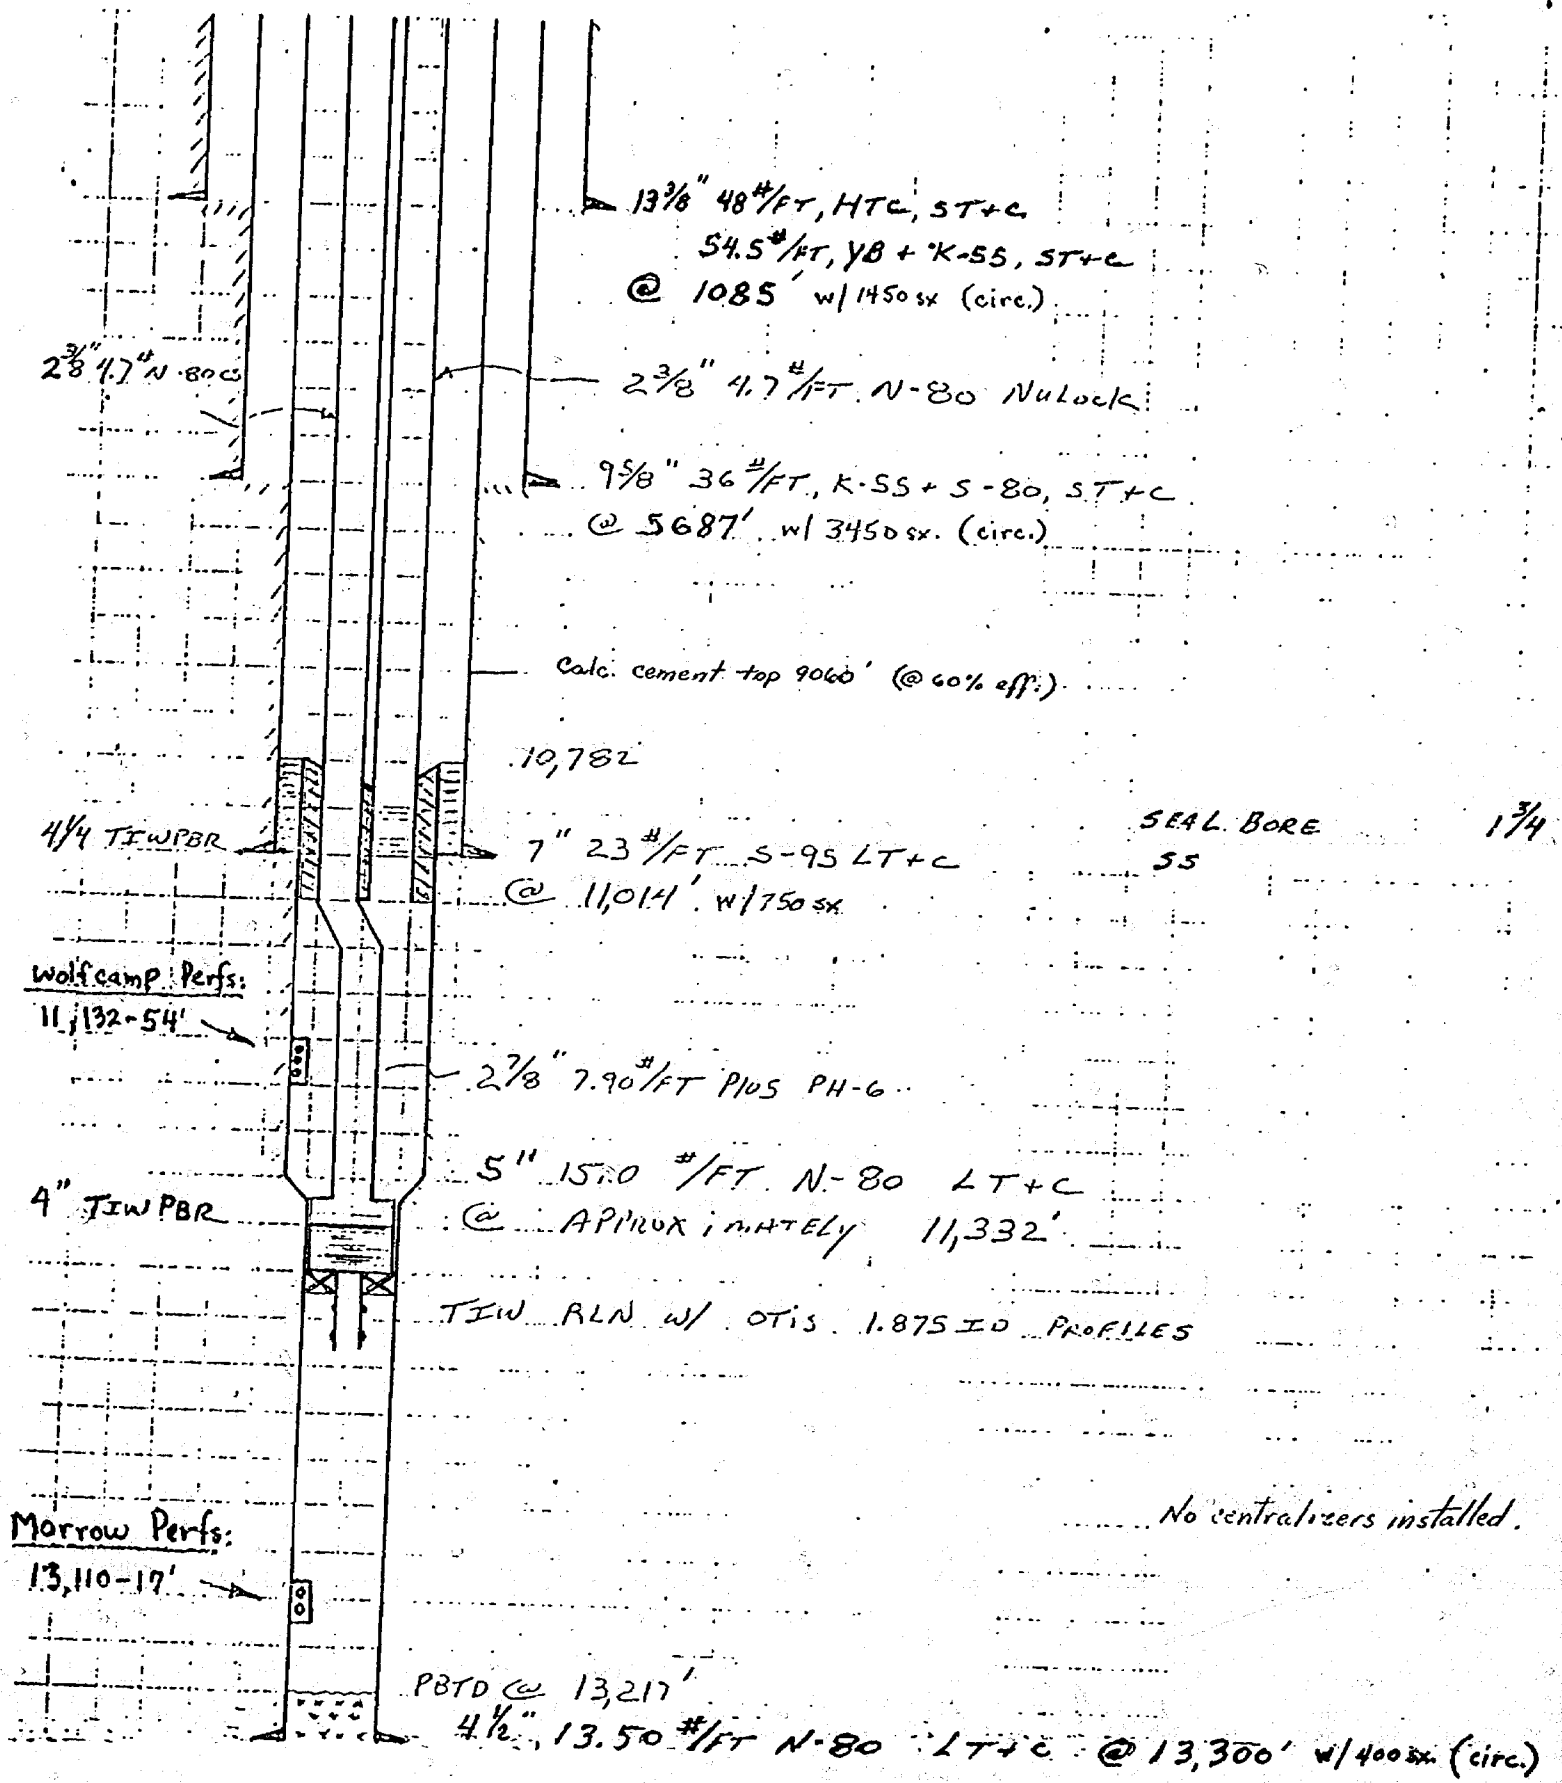 13 3/8" 48 #/FT, HTC, ST+C
54.5 #/FT, YB + K-55, ST+C
@ 1085' w/ 1450 sx (circ.)
2 3/8" 4.7 # N-80
2 3/8" 4.7 #/FT. N-80 NuLock
9 5/8" 36 #/FT., K-55 + S-80, ST+C
@ 5687' w/ 3450 sx. (circ.)
Calc. cement top 9060' (@ 60% eff.)
10,782
4 1/4 TIW PBR
7" 23 #/FT S-95 LT+C
@ 11,014' w/ 750 sx
SEAL BORE 1 3/4
SS
Wolfcamp Perfs:
11,132-54'
2 7/8" 7.90 #/FT PLUS PH-6
5" 15.0 #/FT. N-80 LT+C
@ APPROXIMATELY 11,332'
4" TIW PBR
TIW RLN W/ OTIS 1.875 ID PROFILES
No centralizers installed.
Morrow Perfs:
13,110-17'
PBTD @ 13,217'
4 1/2", 13.50 #/FT N-80 LT+C @ 13,300' w/ 400 sx. (circ.)